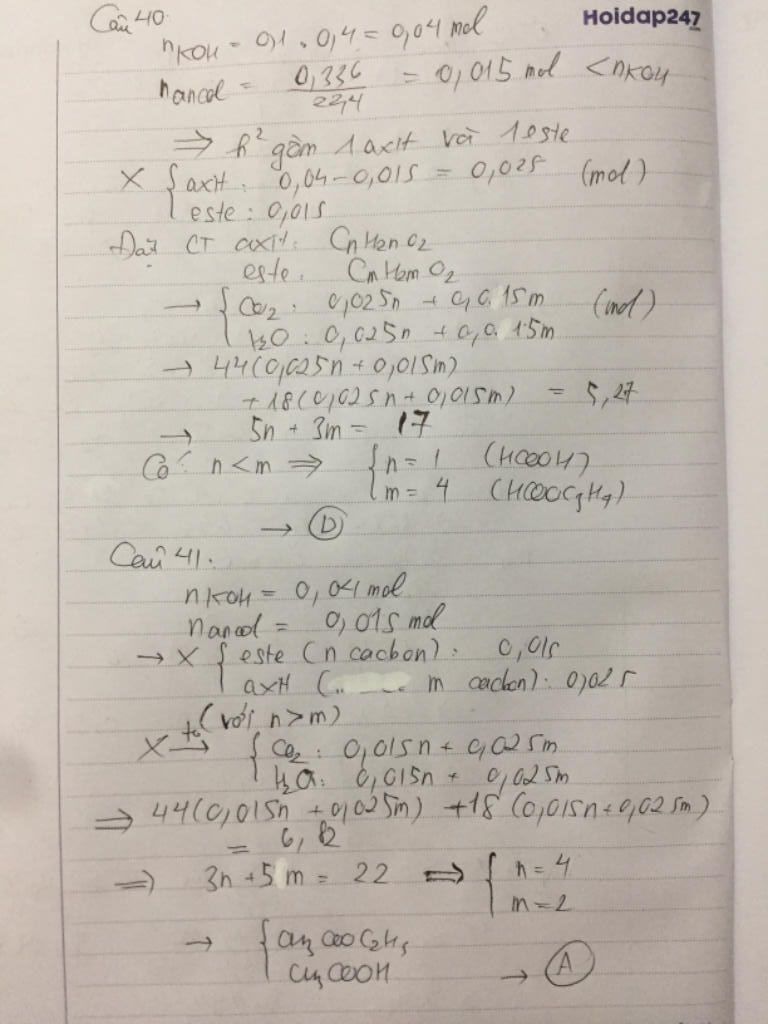 Hoidap247
Câu 40.
nKOH = 0,1 . 0,4 = 0,04 mol
nancol = 0,336/22,4 = 0,015 mol < nKOH
⇒ h² gồm 1 axit và 1 este
X { axit: 0,04 - 0,015 = 0,025 (mol)
este: 0,015
Đặt CT axit: CnH2nO2
este: CmH2mO2
→ { CO2: 0,025n + 0,015m (mol)
H2O: 0,025n + 0,015m
→ 44(0,025n + 0,015m)
+ 18(0,025n + 0,015m) = 5,27
→ 5n + 3m = 17
Có: n < m ⇒ { n = 1 (HCOOH)
m = 4 (HCOOC3H7)
→ D
Câu 41.
nKOH = 0,04 mol
nancol = 0,015 mol
→ X { este (n cacbon): 0,015
axit (.. m cacbon): 0,025
(với n > m)
X t° → { CO2: 0,015n + 0,025m
H2O: 0,015n + 0,025m
⇒ 44(0,015n + 0,025m) + 18(0,015n + 0,025m)
= 6,82
⇒ 3n + 5m = 22 ⇒ { n = 4
m = 2
→ { CH3COOC2H5
CH3COOH → A